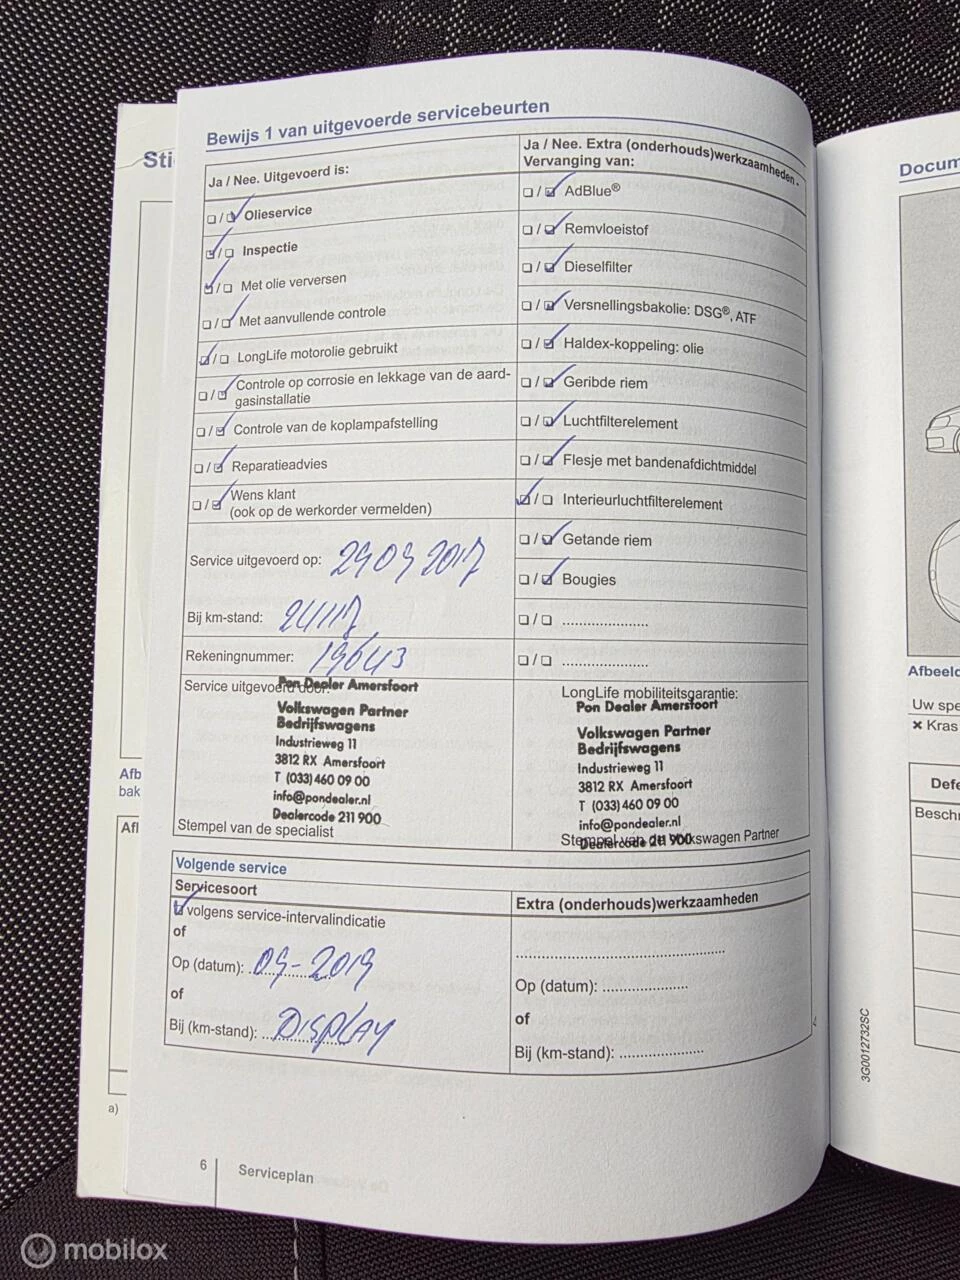 Bewijs 1 van uitgevoerde servicebeurten
Ja / Nee. Uitgevoerd is:
Olieservice
Inspectie
Met olie verversen
Met aanvullende controle
LongLife motorolie gebruikt
Controle op corrosie en lekkage van de aard-
gasinstallatie
Controle van de koplampafstelling
Reparatieadvies
Wens klant
(ook op de werkorder vermelden)
Service uitgevoerd op: 29 09 2017
Bij km-stand: 24117
Rekeningnummer: 19643
Service uitgevoerd door:
Pon Dealer Amersfoort
Volkswagen Partner
Bedrijfswagens
Industrieweg 11
3812 RX Amersfoort
T (033) 460 09 00
info@pondealer.nl
Dealercode 211 900
Stempel van de specialist
Ja / Nee. Extra (onderhouds)werkzaamheden -
Vervanging van:
AdBlue®
Remvloeistof
Dieselfilter
Versnellingsbakolie: DSG®, ATF
Haldex-koppeling: olie
Geribde riem
Luchtfilterelement
Flesje met bandenafdichtmiddel
Interieurluchtfilterelement
Getande riem
Bougies
LongLife mobiliteitsgarantie:
Pon Dealer Amersfoort
Volkswagen Partner
Bedrijfswagens
Industrieweg 11
3812 RX Amersfoort
T (033) 460 09 00
info@pondealer.nl
Dealercode 211 900
Stempel van de Volkswagen Partner
Volgende service
Servicesoort
volgens service-intervalindicatie
of
Op (datum): 09-2019
of
Bij (km-stand): DISPLAY
Extra (onderhouds)werkzaamheden
Op (datum):
of
Bij (km-stand):
6 Serviceplan
Sti
Afb
bak
Afl
a)
Docum
Afbeeld
Uw spe
× Kras
Defe
Beschr
3G0012732SC
mobilox